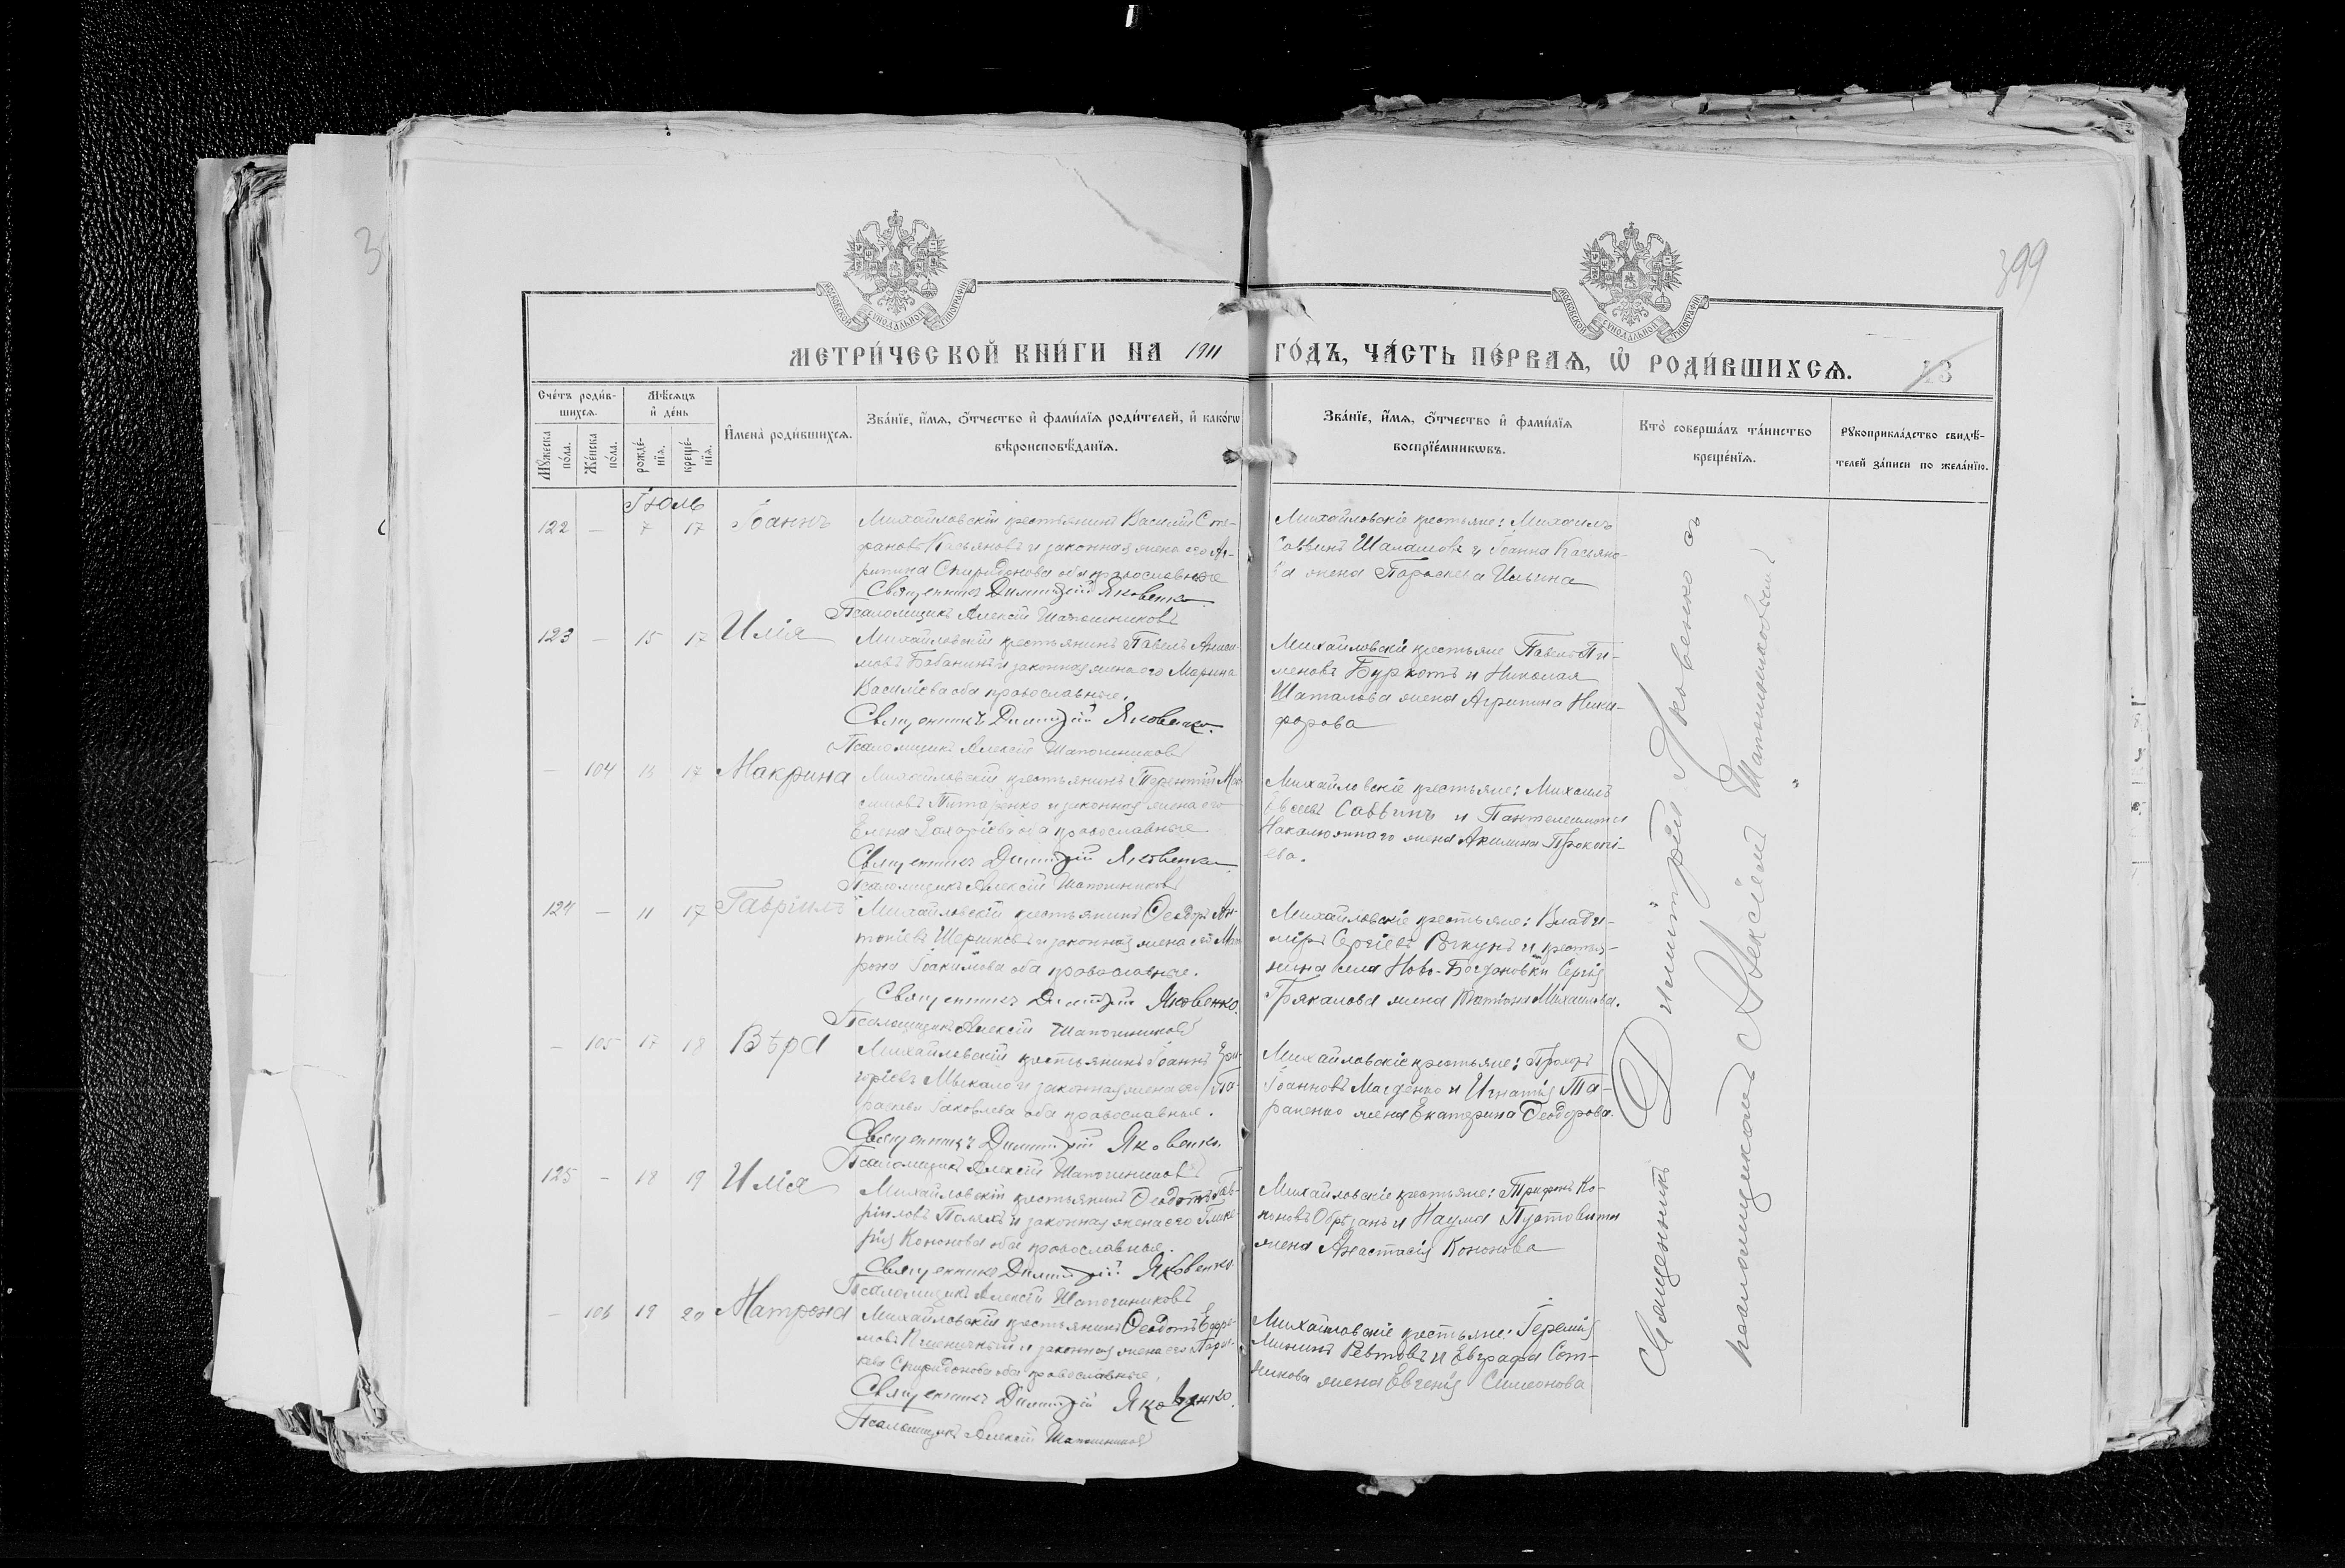 399
МЕТРИ́ЧЕСКОЙ КНИ́ГИ НА 1911 ГО́ДЪ, ЧА́СТЬ ПЕ́РВАѦ, Ѡ҆ РОДИ́ВШИХСѦ. 13
Сче́тъ роди́в-
шихсѧ.
Мꙋ́жеска по́ла.
Же́нска по́ла.
Мѣ́сѧцъ
и҆ де́нь
рожде́-
нїѧ.
креще́-
нїѧ.
И҆мена̀ роди́вшихсѧ.
Зва́нїе, и҆́мѧ, ѻ҆́тчество и҆ фами́лїѧ роди́телей, и҆ како́гѡ
вѣроисповѣ́данїѧ.
Зва́нїе, и҆́мѧ, ѻ҆́тчество и҆ фами́лїѧ
воспрїе́мникѡвъ.
Кто̀ соверша́лъ та́инство
креще́нїѧ.
Рꙋкоприкла́дство свидѣ́-
телей за́писи по жела́нїю.
Іюль
122 — 7 17 Іоаннъ
Михайловскій крестьянинъ Василій Сте-
фановъ Касьяновъ и законная жена его Аг-
рипина Спиридонова оба православные
Священникъ Димитрій Яковенко
Псаломщикъ Алексій Шапошниковъ
Михайловскіе крестьяне: Михаилъ
Саввинъ Шаламовъ и Іоанна Касьяно-
ва жена Параскева Ильина
123 — 15 17 Илія
Михайловскій крестьянинъ Павелъ
Бабанинъ и законная жена его Марина
Василіева оба православные.
Священникъ Димитрій Яковенко.
Псаломщикъ Алексій Шапошниковъ
Михайловскіе крестьяне Павелъ Пи-
меновъ Буркотъ и Николая
Шаталова жена Агрипина Ники-
форова
— 104 15 17 Макрина
Михайловскій крестьянинъ Терентій Мак-
симовъ Титаренко и законная жена его
Елена Захаріева оба православные
Священникъ Димитрій Яковенко.
Псаломщикъ Алексій Шапошниковъ
Михайловскіе крестьяне: Михаилъ
Саввинъ и Пантелеимона
жена Акилина Прокопі-
ева.
124 — 11 17 Гавріилъ
Михайловскій крестьянинъ Ѳеодоръ Ан-
тоніевъ Шершковъ и законная жена его Мат-
рона Іоакимова оба православные.
Священникъ Димитрій Яковенко.
Псаломщикъ Алексій Шапошниковъ
Михайловскіе крестьяне: Влади-
міръ Сергіевъ и крестья-
нина села Ново-Богдановки Сергія
Грякалова жена Татіана Михаилова.
— 105 17 18 Вѣра
Михайловскій крестьянинъ Іоаннъ Гри-
горіевъ Мыкало и законная жена его Па-
раскева Іаковлева оба православные.
Священникъ Димитрій Яковенко.
Псаломщикъ Алексій Шапошниковъ
Михайловскіе крестьяне: Прохоръ
Іоанновъ Магденко и Игнатія Та-
раненко жена Екатерина Ѳеодорова.
125 — 18 19 Илія
Михайловскій крестьянинъ Ѳеодотъ Гав-
ріиловъ Полякъ и законная жена его Глике-
рія Кононова оба православные.
Священникъ Димитрій Яковенко.
Псаломщикъ Алексій Шапошниковъ
Михайловскіе крестьяне: Трифонъ Ко-
ноновъ Обрѣзанъ и Наума Пустовита
жена Анастасія Кононова
— 106 19 20 Матрона
Михайловскій крестьянинъ Ѳеодотъ Ефре-
мовъ Пшеничный и законная жена его Парас-
кева Спиридонова оба православные.
Священникъ Димитрій Яковенко.
Псаломщикъ Алексій Шапошниковъ
Михайловскіе крестьяне: Іеремія
Мининъ Ревтовъ и Евграфа Сот-
никова жена Евгенія Симеонова
Священникъ Димитрій Яковенко съ
псаломщикомъ Алексіемъ Шапошниковымъ